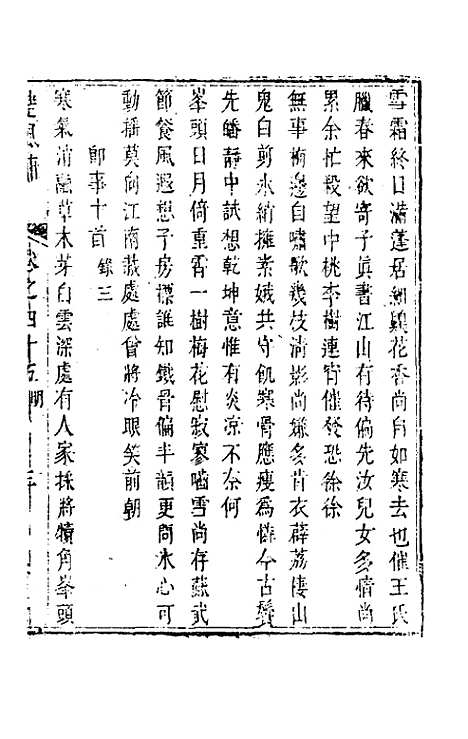 雪霜終日滿蓬居細顆花香尚自如寒去也催王氏
臘春來欲寄子真書江山有待偏先汝兒女多情尚
累余忙殺望中桃李樹連宵催發恐徐徐
無事梅邊自嘯歌幾枝淸影尚嫌多肯衣薜荔悽山
鬼白剪氷綃擁素娥共守飢寒骨應瘦爲憐今古鬢
先皤靜中試想乾坤意惟有炎凉不奈何
峯頭日月倚重霄一樹梅花慰寂寥嚙雪尚存蘇武
節餐風遐想子房標誰知鐵骨偏半韻更問氷心可
動搖莫向江南誇處處曾將冷眼笑前朝
卽事十首 錄三
寒氣消融草木芽白雲深處有人家採將犢角峯頭
卷之四十五 明